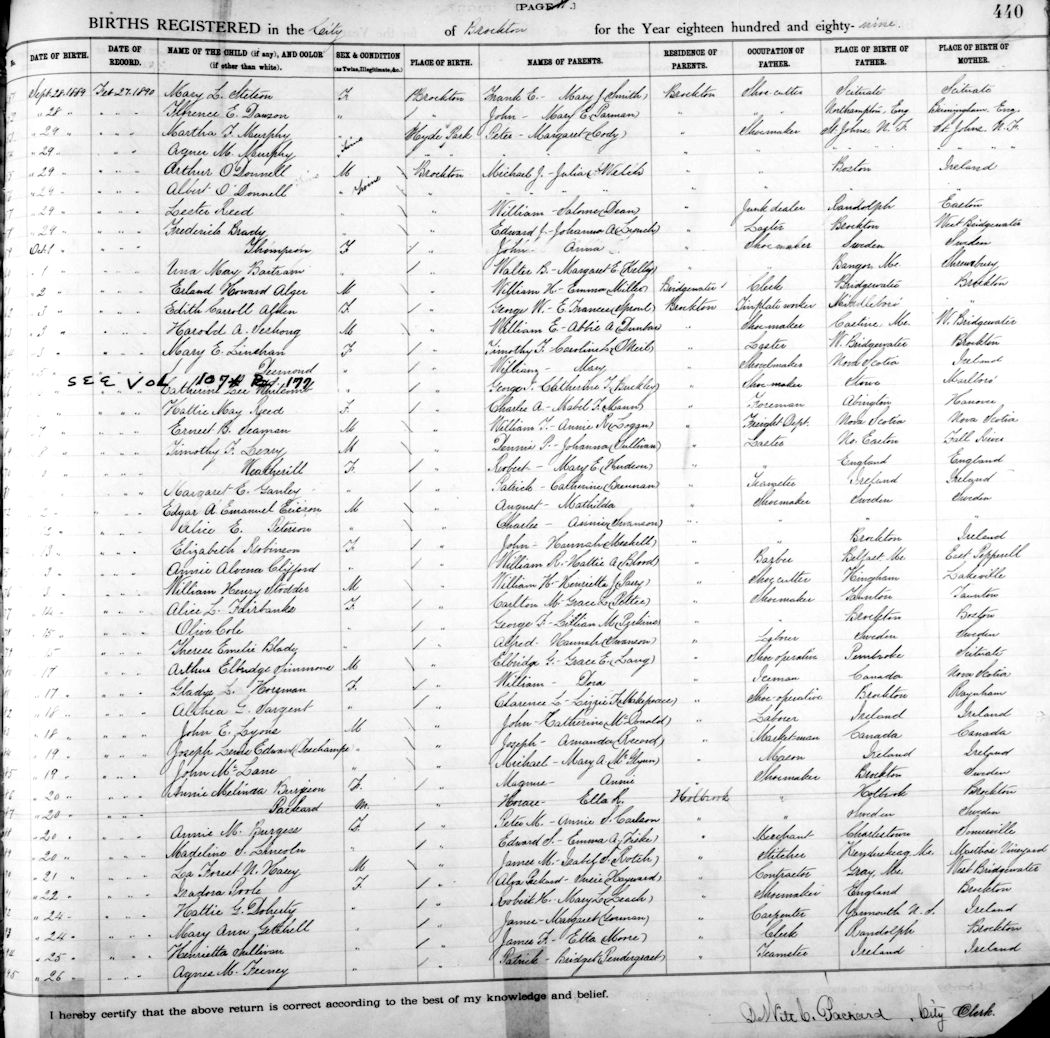 [PAGE .]
440
BIRTHS REGISTERED in the City of Brockton for the Year eighteen hundred and eighty-nine.
DATE OF BIRTH. DATE OF RECORD. NAME OF THE CHILD (if any), AND COLOR (if other than white). SEX & CONDITION (as Twins, Illegitimate, &c.) PLACE OF BIRTH. NAMES OF PARENTS. RESIDENCE OF PARENTS. OCCUPATION OF FATHER. PLACE OF BIRTH OF FATHER. PLACE OF BIRTH OF MOTHER.
Sept. 28. 1889 Feb. 27. 1890 Mary L. Stetson F. Brockton Frank E. - Mary J. (Smith) Brockton Shoe cutter Scituate Scituate
" 28 " " " " Florence E. Dawson " " John - Mary E. (Parman) " " " Northampton, Eng Birmingham, Eng.
" 29 " " " " Martha F. Murphy " Hyde Park Peter - Margaret (Cody) " Shoemaker St Johns N. F. St Johns. N. F.
" 29 " " " " Agnes M. Murphy " Twins " " " " " " " " "
" 29 " " " " Arthur O'Donnell M Brockton Michael J. - Julia (Welch) " " Boston Ireland
" 29 " " " " Albert O'Donnell " Twins " " " " " " " "
" 29 " " " " Lester Reed " " William - Salome (Dean) " Junk dealer Randolph Easton
" 29 " " " " Frederick Brady " " Edward J. - Johanna A. (Lynch) " Laster Brockton West Bridgewater
Oct. 1 " " " Thompson F. " John - Anna " Shoemaker Sweden Sweden
" 1 " " " " Una May Bartram " " Walter B. - Margaret E. (Kelley) " " Bangor, Me. Shrewsbury
" 2 " " " " Erland Howard Alger M " William H. - Emma (Mills) Bridgewater Clerk Bridgewater Brockton
" 3 " " " " Edith Carroll Alden F. " George W. - E. Frances (Sproul) Brockton Tinplate worker Middleboro " "
" 3 " " " " Harold A. M " William E. - Abbie A. (Dunbar) " Shoemaker Castine, Me. W. Bridgewater
" 3 " " " " Mary E. Linehan F. " Timothy F. - Caroline L. (O'Neil) " Laster W. Bridgewater Brockton
Desmond " William - Mary " Shoemaker Nova Scotia Ireland
SEE VOL 107 # P. 177
Catherine Lee Whitcomb " George F. - Catherine F. (Buckley) " Shoemaker Stowe Marlboro
Hattie May Reed F. " Charles A. - Mabel F. (Mann) " Foreman Abington Hanover
Ernest B. Seaman M " William F. - Annie R. (Logan) " Freight Dept. Nova Scotia Nova Scotia
Timothy F. Leary M " Dennis P. - Johanna (Sullivan) " Laster No. Easton Fall River
Weatherill F. " Robert - Mary E. (Hudson) " England England
Margaret E. Ganley " " Patrick - Catherine (Brennan) " Teamster Ireland Ireland
Edgar A. Emanuel Ericson M " August - Mathilda " Shoemaker Sweden Sweden
Alice E. Peterson " " Charles - Annie (Swanson) " " " "
Elizabeth Robinson F. " John - Hannah (Meskill) " " Brockton Ireland
Annie Alvena Clifford " " William R. - Hattie A. (Blood) " Barber Belfast Me. East Pepperell
William Henry Stodder M " William H. - Henrietta J. (Parry) " Shoe cutter Hingham Lakeville
Alice L. Fairbanks F. " Carlton M. - Grace L. (Pettee) " Shoemaker Taunton Taunton
Olive Cole " " George F. - Lillian M. (Perkins) " " Brockton Boston
" 15 Therese Emelie Blady " " Alfred - Hannah (Swanson) " Laborer Sweden Sweden
" 15 Arthur Elbridge Simmons M " Elbridge G. - Grace E. (Lang) " Shoe operative Pembroke Scituate
" 17 Gladys L. Horsman F. " William - Dora " Iceman Canada Nova Scotia
" 17 Althea G. Sargent " " Clarence L. - Lizzie F. (Makepeace) " Shoe operative Brockton Raynham
" 18 John E. Lyons M " John - Catherine (McDonald) " Laborer Ireland Ireland
" 18 Joseph Louis Edward Deschamps " " Joseph - Amanda (Record) " Marketman Canada Canada
" 19 John McLane " " Michael - Mary A. (McGlynn) " Mason Ireland Ireland
" 19 Annie Melinda F. " Magnus - Annie " Shoemaker Brockton Sweden
" 20 Packard M. " Horace - Ella R. Holbrook " Holbrook Brockton
" 20 Annie M. Burgess F. " Peter M. - Annie S. (Carlson) " " Sweden Sweden
" 20 Madeline S. Lincoln " " Edward S. - Emma A. (Fiske) " Merchant Charlestown Somerville
" 20 La Forest N. Haley M " James M. - Isabel S. (Rotch) " Stitcher Kenduskeag, Me. Marthas Vineyard
" 21 Isadora Poole F. " Alga Packard - Susie (Hayward) " Contractor Gray, Me. West Bridgewater
" 22 Hattie G. Doherty " " Robert H. - Mary L. (Leach) " Shoemaker England Brockton
" 24 Mary Ann Getchell " " James - Margaret (Gorman) " Carpenter Yarmouth N. S. Ireland
" 24 Henrietta Sullivan " " James F. - Etta (Moore) " Clerk Randolph Brockton
" 25 Agnes M. Feeney " " Patrick - Bridget (Pendergrast) " Teamster Ireland Ireland
" 26
I hereby certify that the above return is correct according to the best of my knowledge and belief.
DeWitt C. Packard, City Clerk.